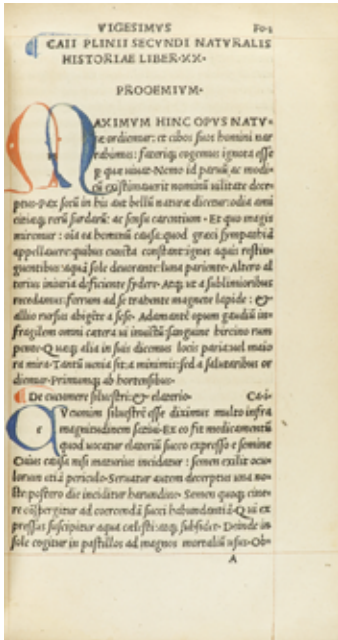 VIGESIMVS
CAII PLINII SECVNDI NATVRALIS
HISTORIAE LIBER·XX·
PROOEMIVM·
MAXIMVM HINC OPVS NATV
rae ordiemur: et cibos suos homini nar
rabimus: fateriq; cogemus ignota esse
p quae uiuat·Nemo id paruū ac modi
cū existimauerit nominū uilitate dece
ptus·Pax secū in his aut bellū naturae dicetur: odia ami
citiaeq; rerū surdarū: ac sensu carentium·Et quo magis
miremur: oīa ea hominū causa: quod graeci sympathiā
appellauere: quibus cuncta constant: ignes aquis restin
guentibus: aquā sole deuorante: luna pariente·Altero al
terius iniuria deficiente sydere·Atq; ut a sublimioribus
recedamus: ferrum ad se trahente magnete lapide: &
allio rursus abigēte a sese·Adamantē opum gaudiū in
fragilem omni caetera ui inuictū: sanguine hircino rum
pente·Quaeq; alia in suis dicemus locis paria: uel maio
ra mira·Tantū uenia sit: a minimis: sed a salutaribus or
diemur·Primumq; ab hortensibus·
De cucumere siluestri: & elaterio· Ca·i·
CVcumim siluestrē esse diximus multo infra
magnitudinem satiui·Ex eo fit medicamentū
quod uocatur elateriū succo expresso e semine
Cuius causa nisi maturius incidatur: semen exilit ocu
lorum etiā periculo·Seruatur autem decerptus una no
cte postero die inciditur harundine·Semen quoq; cine
re cōspergitur ad coercendā succi habundantiā·Qui ex
pressus suscipitur aqua caelesti: atq; subsidit·Deinde in
sole cogitur in pastillos ad magnos mortaliū usus·Ob·
A